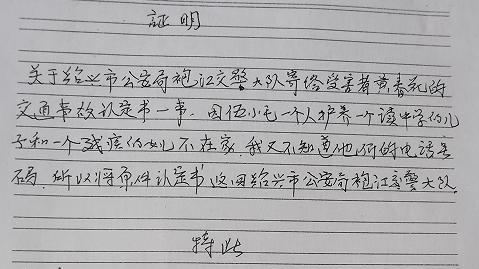 证明
关于给兴市公安局袍江交警大队寄给受害者黄春花的
交通事故认定书一事.因伍小毛一个人抚养一个读中学的儿
子和一个残疾的女儿不在家.我又不知道他们的电话号
码.所以将原件认定书返回给兴市公安局袍江交警大队.
特此